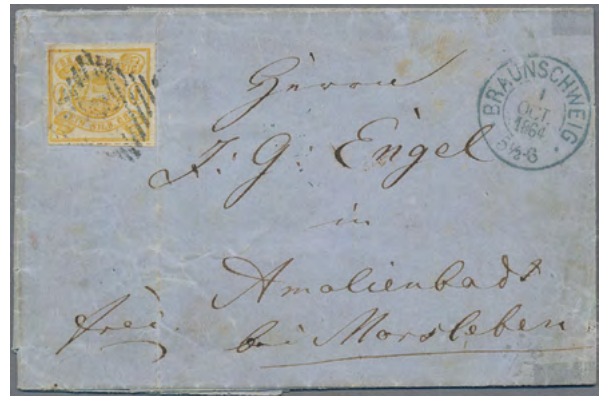 BRAUNSCHWEIG
1
OCT.
1864
5½-6
Herrn
J: G: Engel
in
Amalienbad
bei Morsleben
frei